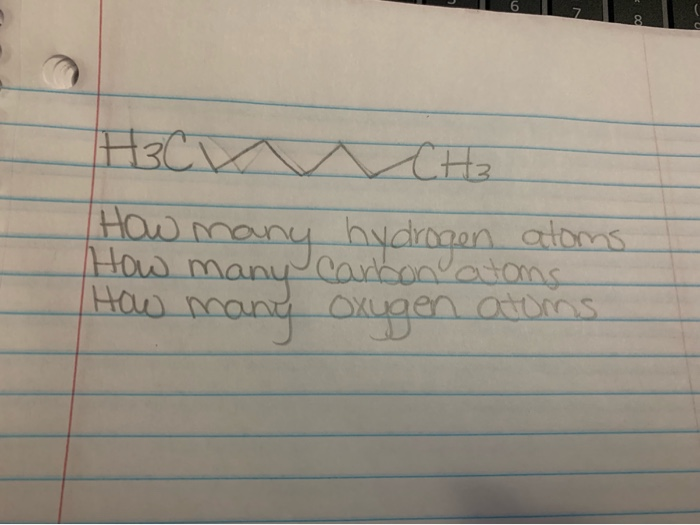 6 7 8
H3C CH3
How many hydrogen atoms
How many Carbon atoms
How many oxygen atoms